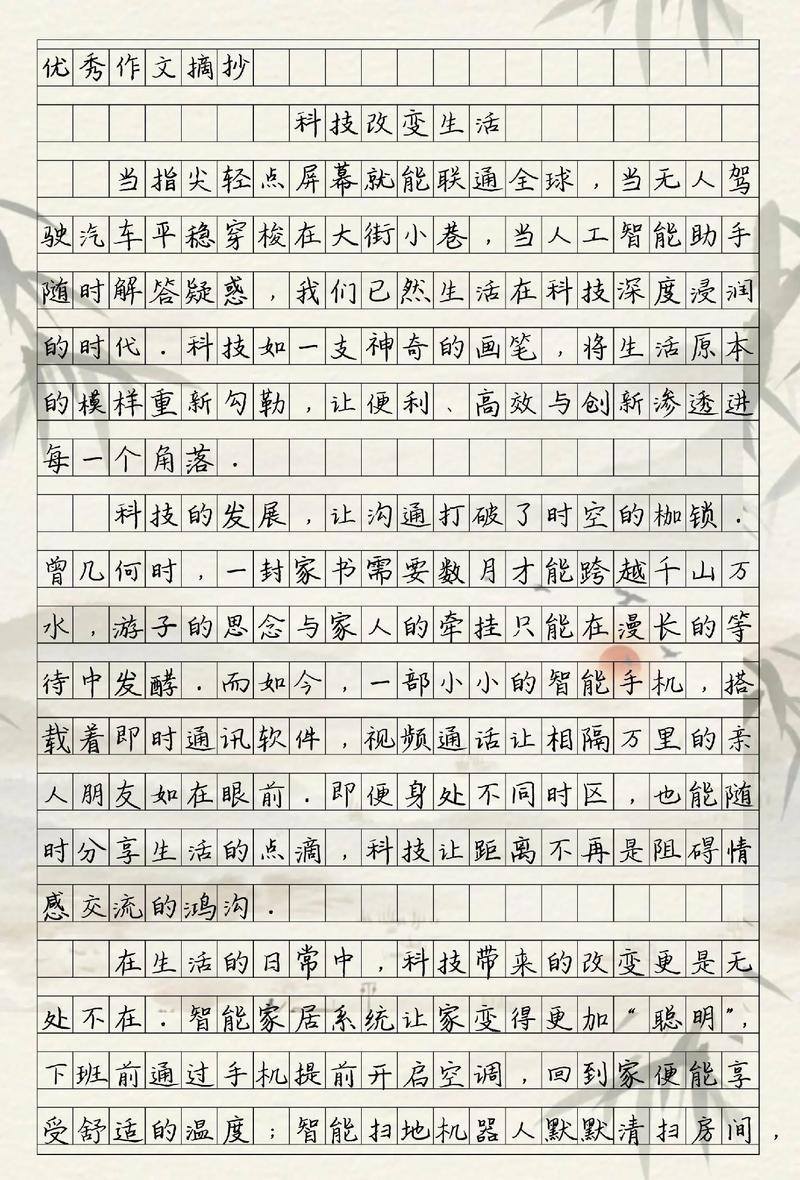 优秀作文摘抄
科技改变生活
当指尖轻点屏幕就能联通全球，当无人驾
驶汽车平稳穿梭在大街小巷，当人工智能助手
随时解答疑惑，我们已然生活在科技深度浸润
的时代．科技如一支神奇的画笔，将生活原本
的模样重新勾勒，让便利、高效与创新渗透进
每一个角落．
科技的发展，让沟通打破了时空的枷锁．
曾几何时，一封家书需要数月才能跨越千山万
水，游子的思念与家人的牵挂只能在漫长的等
待中发酵．而如今，一部小小的智能手机，搭
载着即时通讯软件，视频通话让相隔万里的亲
人朋友如在眼前．即便身处不同时区，也能随
时分享生活的点滴，科技让距离不再是阻碍情
感交流的鸿沟．
在生活的日常中，科技带来的改变更是无
处不在．智能家居系统让家变得更加“聪明”，
下班前通过手机提前开启空调，回到家便能享
受舒适的温度；智能扫地机器人默默清扫房间，